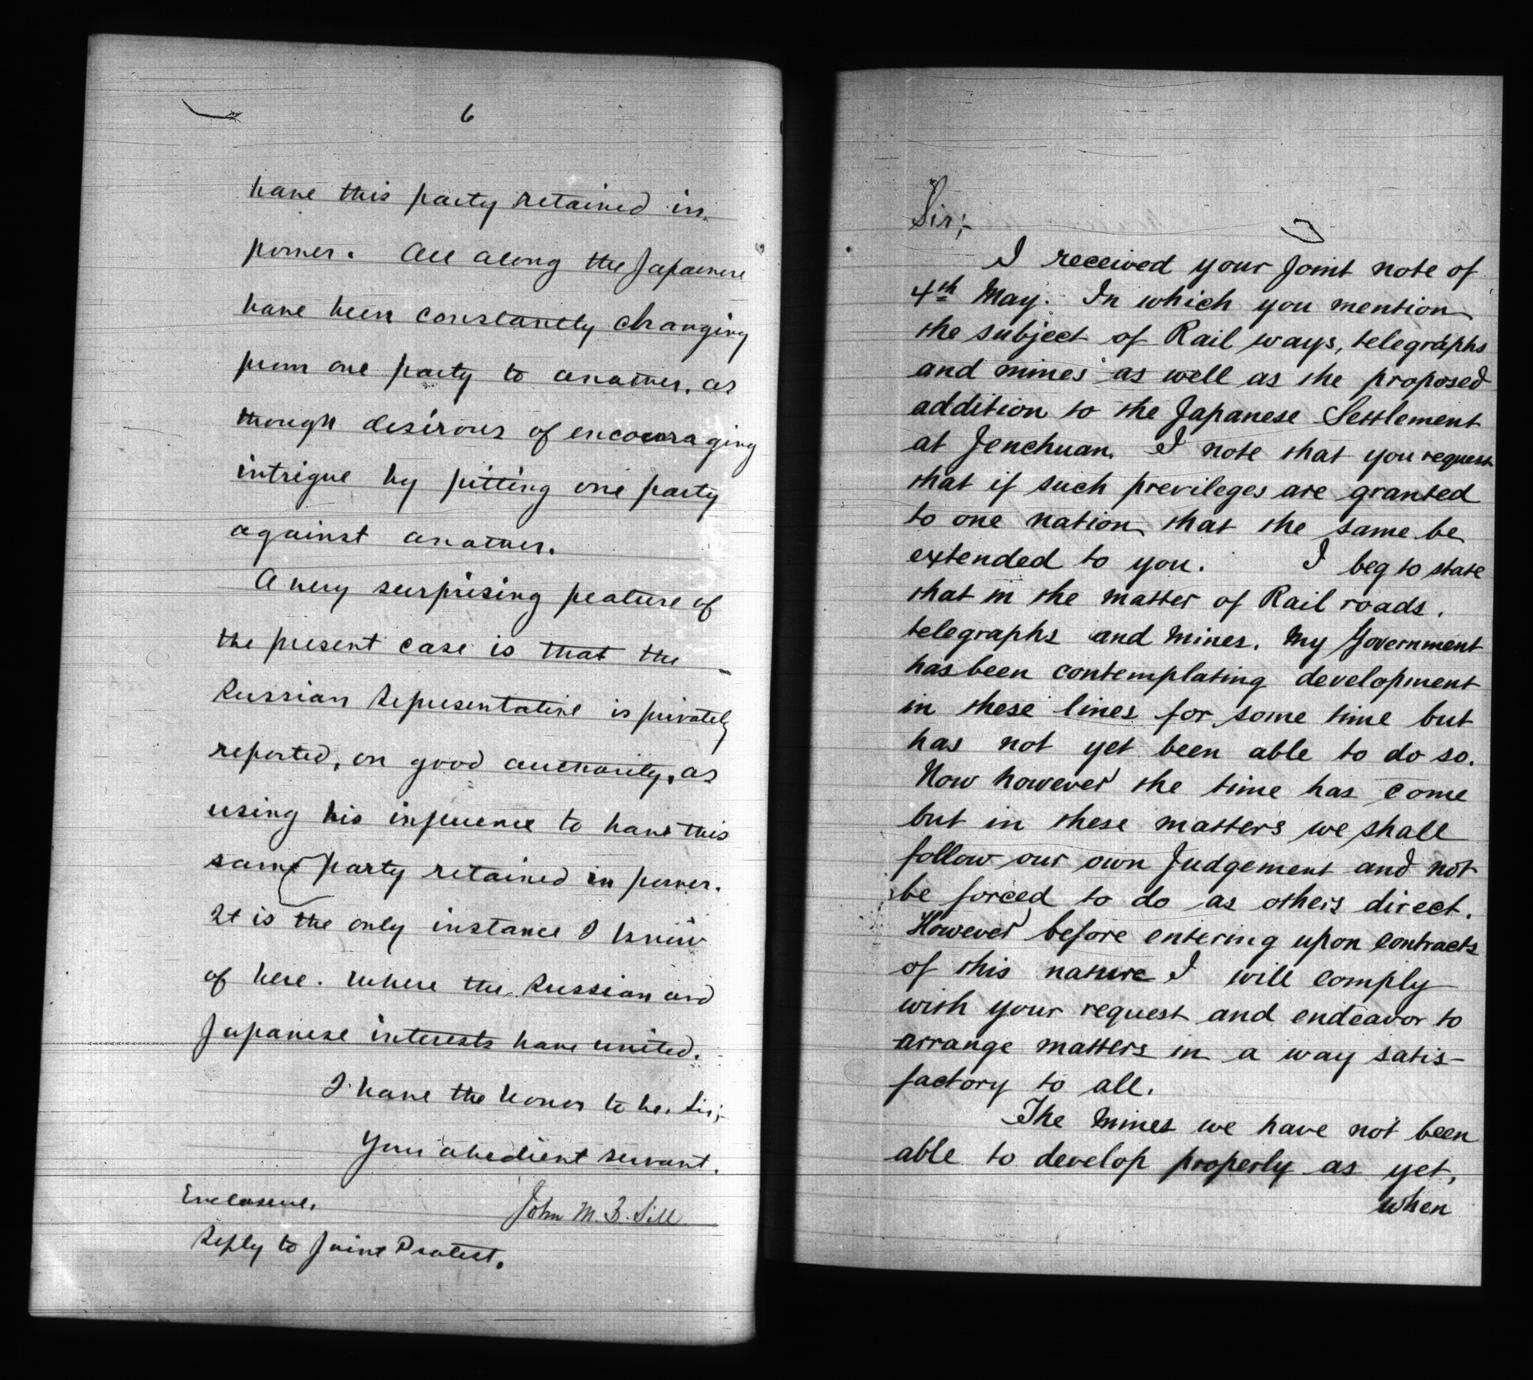 6
have this party retained in
power. All along the Japanese
have been constantly changing
from one party to another, as
though desirous of encouraging
intrigue by pitting one party
against another.
A very surprising feature of
the present case is that the
Russian Representative is privately
reported, on good authority, as
using his influence to have this
same party retained in power.
It is the only instance I know
of here. Where the Russian and
Japanese interests have united.
I have the honor to be, Sir;-
Your obedient servant.
John M. B. Sill
Enclosure.
Reply to Joint Protest.
Sir;-
I received your Joint note of
4th May. In which you mention
the subject of Rail ways, telegraphs
and mines as well as the proposed
addition to the Japanese Settlement
at Jenchuan. I note that you request
that if such previleges are granted
to one nation that the same be
extended to you. I beg to state
that in the matter of Rail roads.
telegraphs and Mines. My Government
has been contemplating development
in these lines for some time but
has not yet been able to do so.
Now however the time has come
but in these matters we shall
follow our own Judgement and not
be forced to do as others direct.
However before entering upon contracts
of this nature I will comply
with your request and endeavor to
arrange matters in a way satis-
factory to all.
The Mines we have not been
able to develop properly as yet,
when